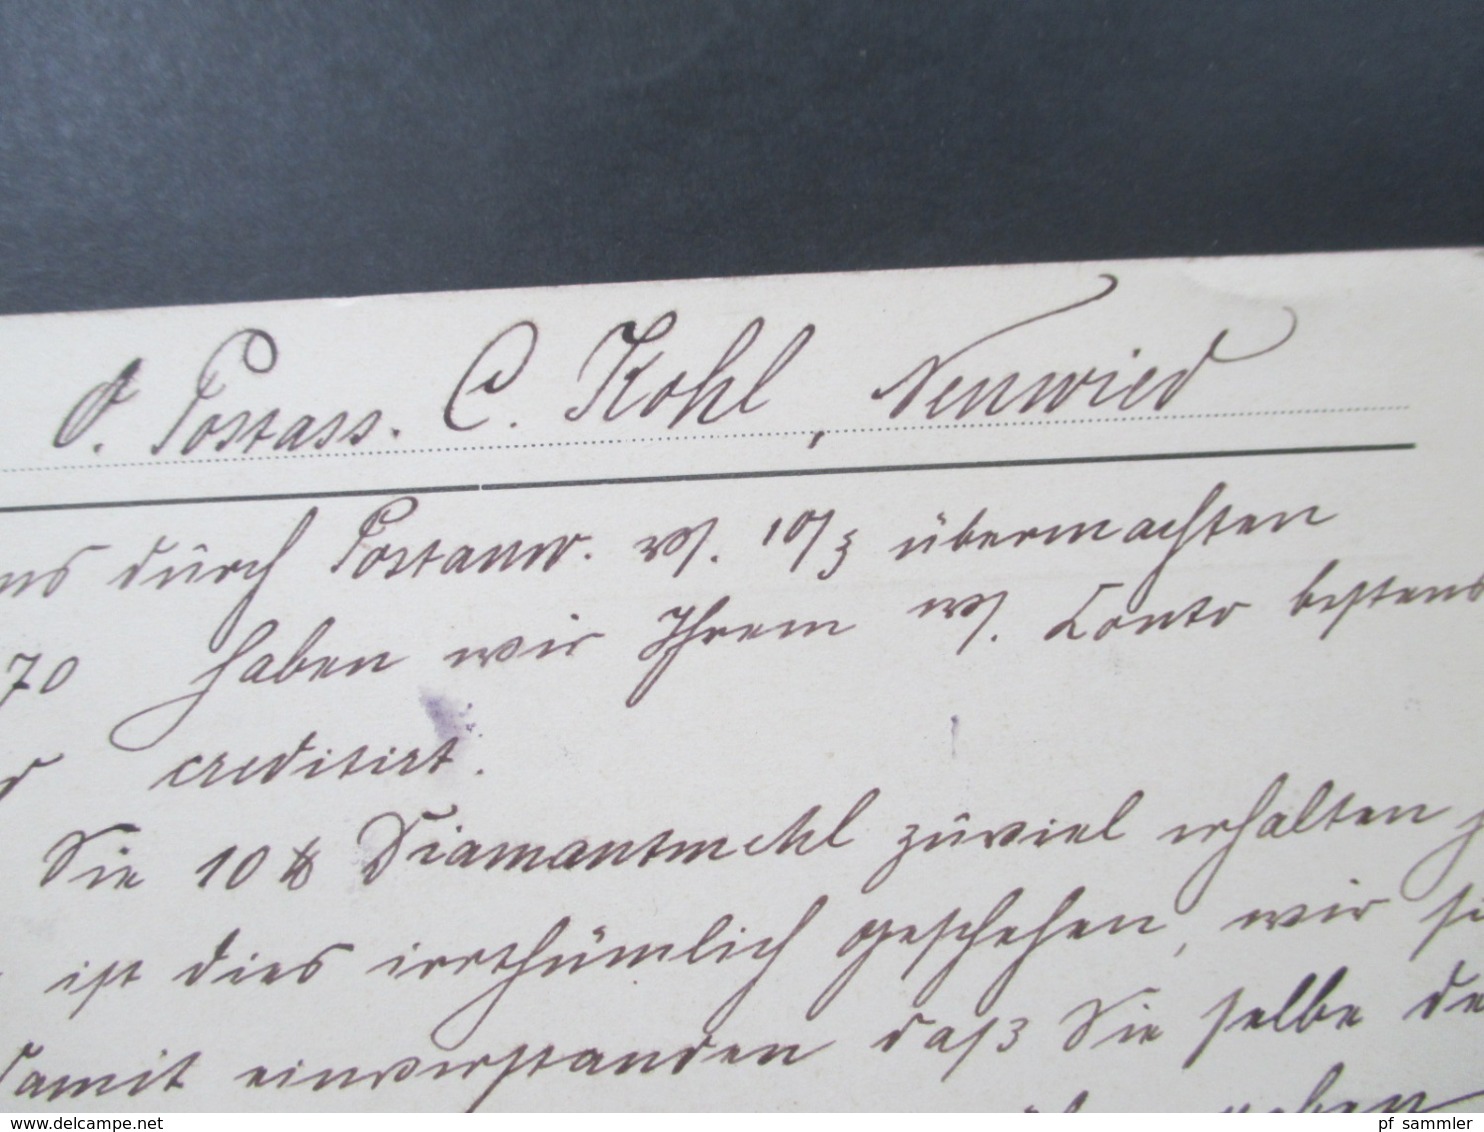 O. Postass. C. Kohl, Neuwied
ns durch Postanw. v/. 10/3 übermachten
70 haben wir Ihrem w/. Conto bestens
creditirt.
Sie 10 ℔ Diamantmehl zuviel erhalten
ist dies irrthümlich geschehen, wir si
damit einverstanden daß Sie selbe de
geben
delcampe.net
pf_sammler